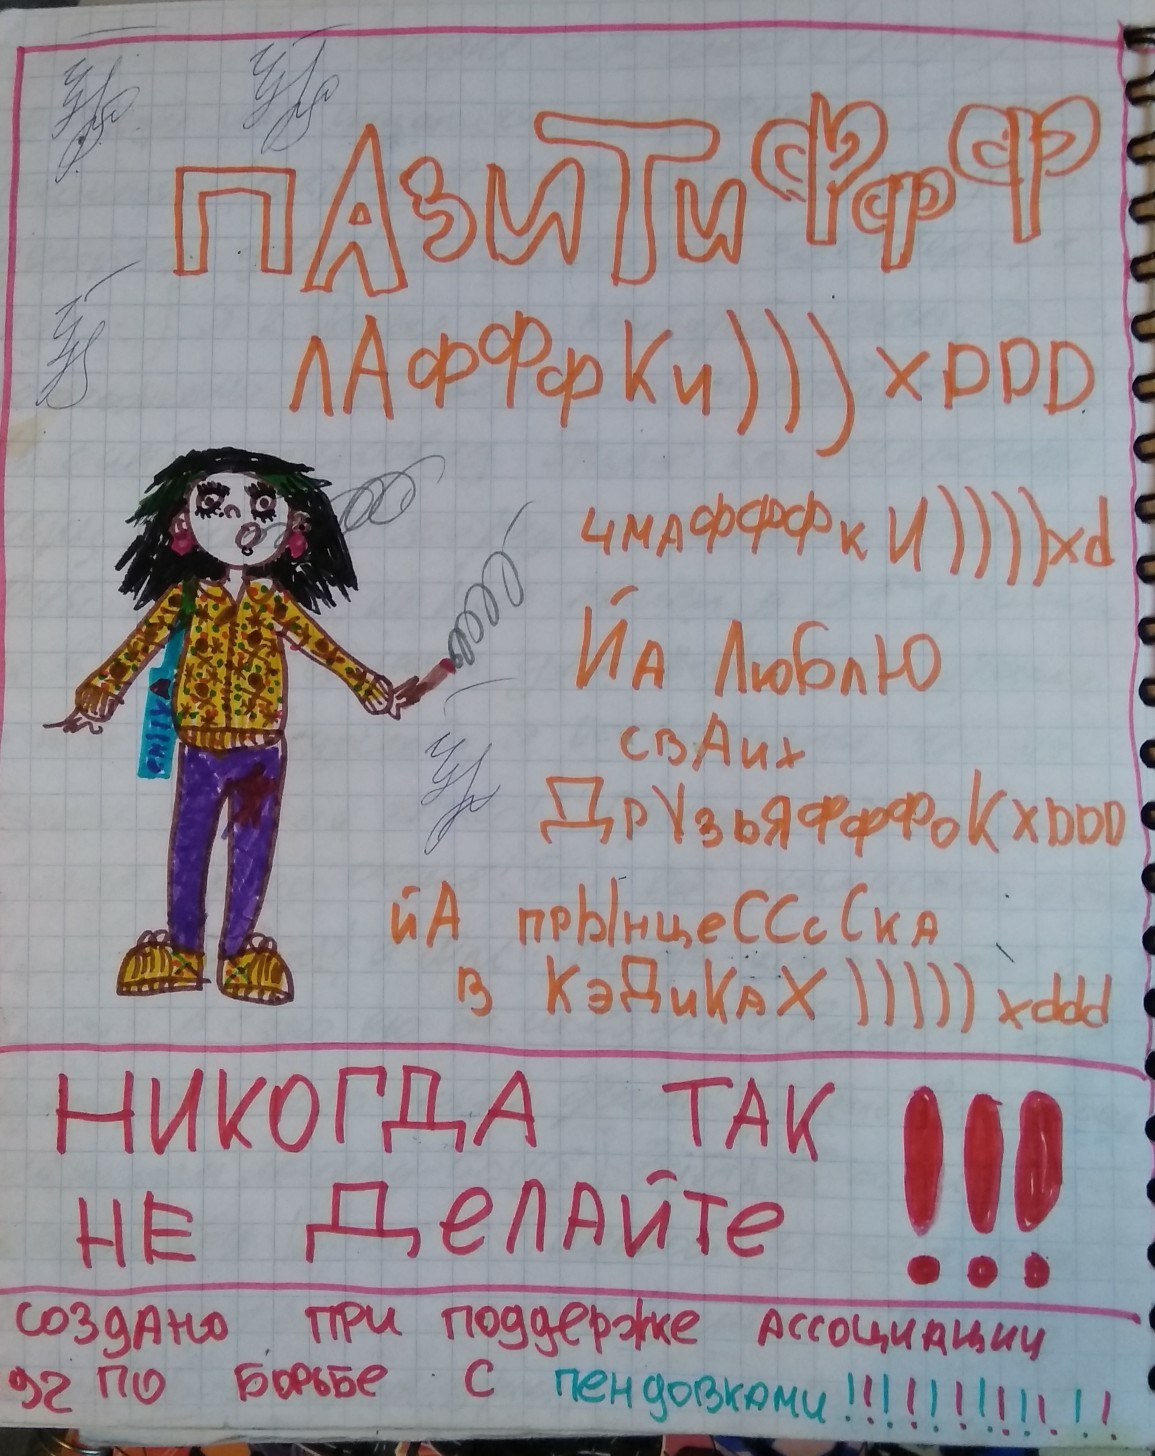 ПАЗИТИФффФ
ЛАфФфКи))) xDDD
чмАфффкИ)))))xd
Йа ЛюблЮ
свАих
ДрУзьЯффФоК xDDD
йА прЫнцеССсСкА
в КэДиКаХ ))))) xddd
НИКОГДА ТАК
НЕ ДелАйТе !!!
создано при поддержке Ассоциации
по борьбе с пендовками!!!!!!!!!!!!